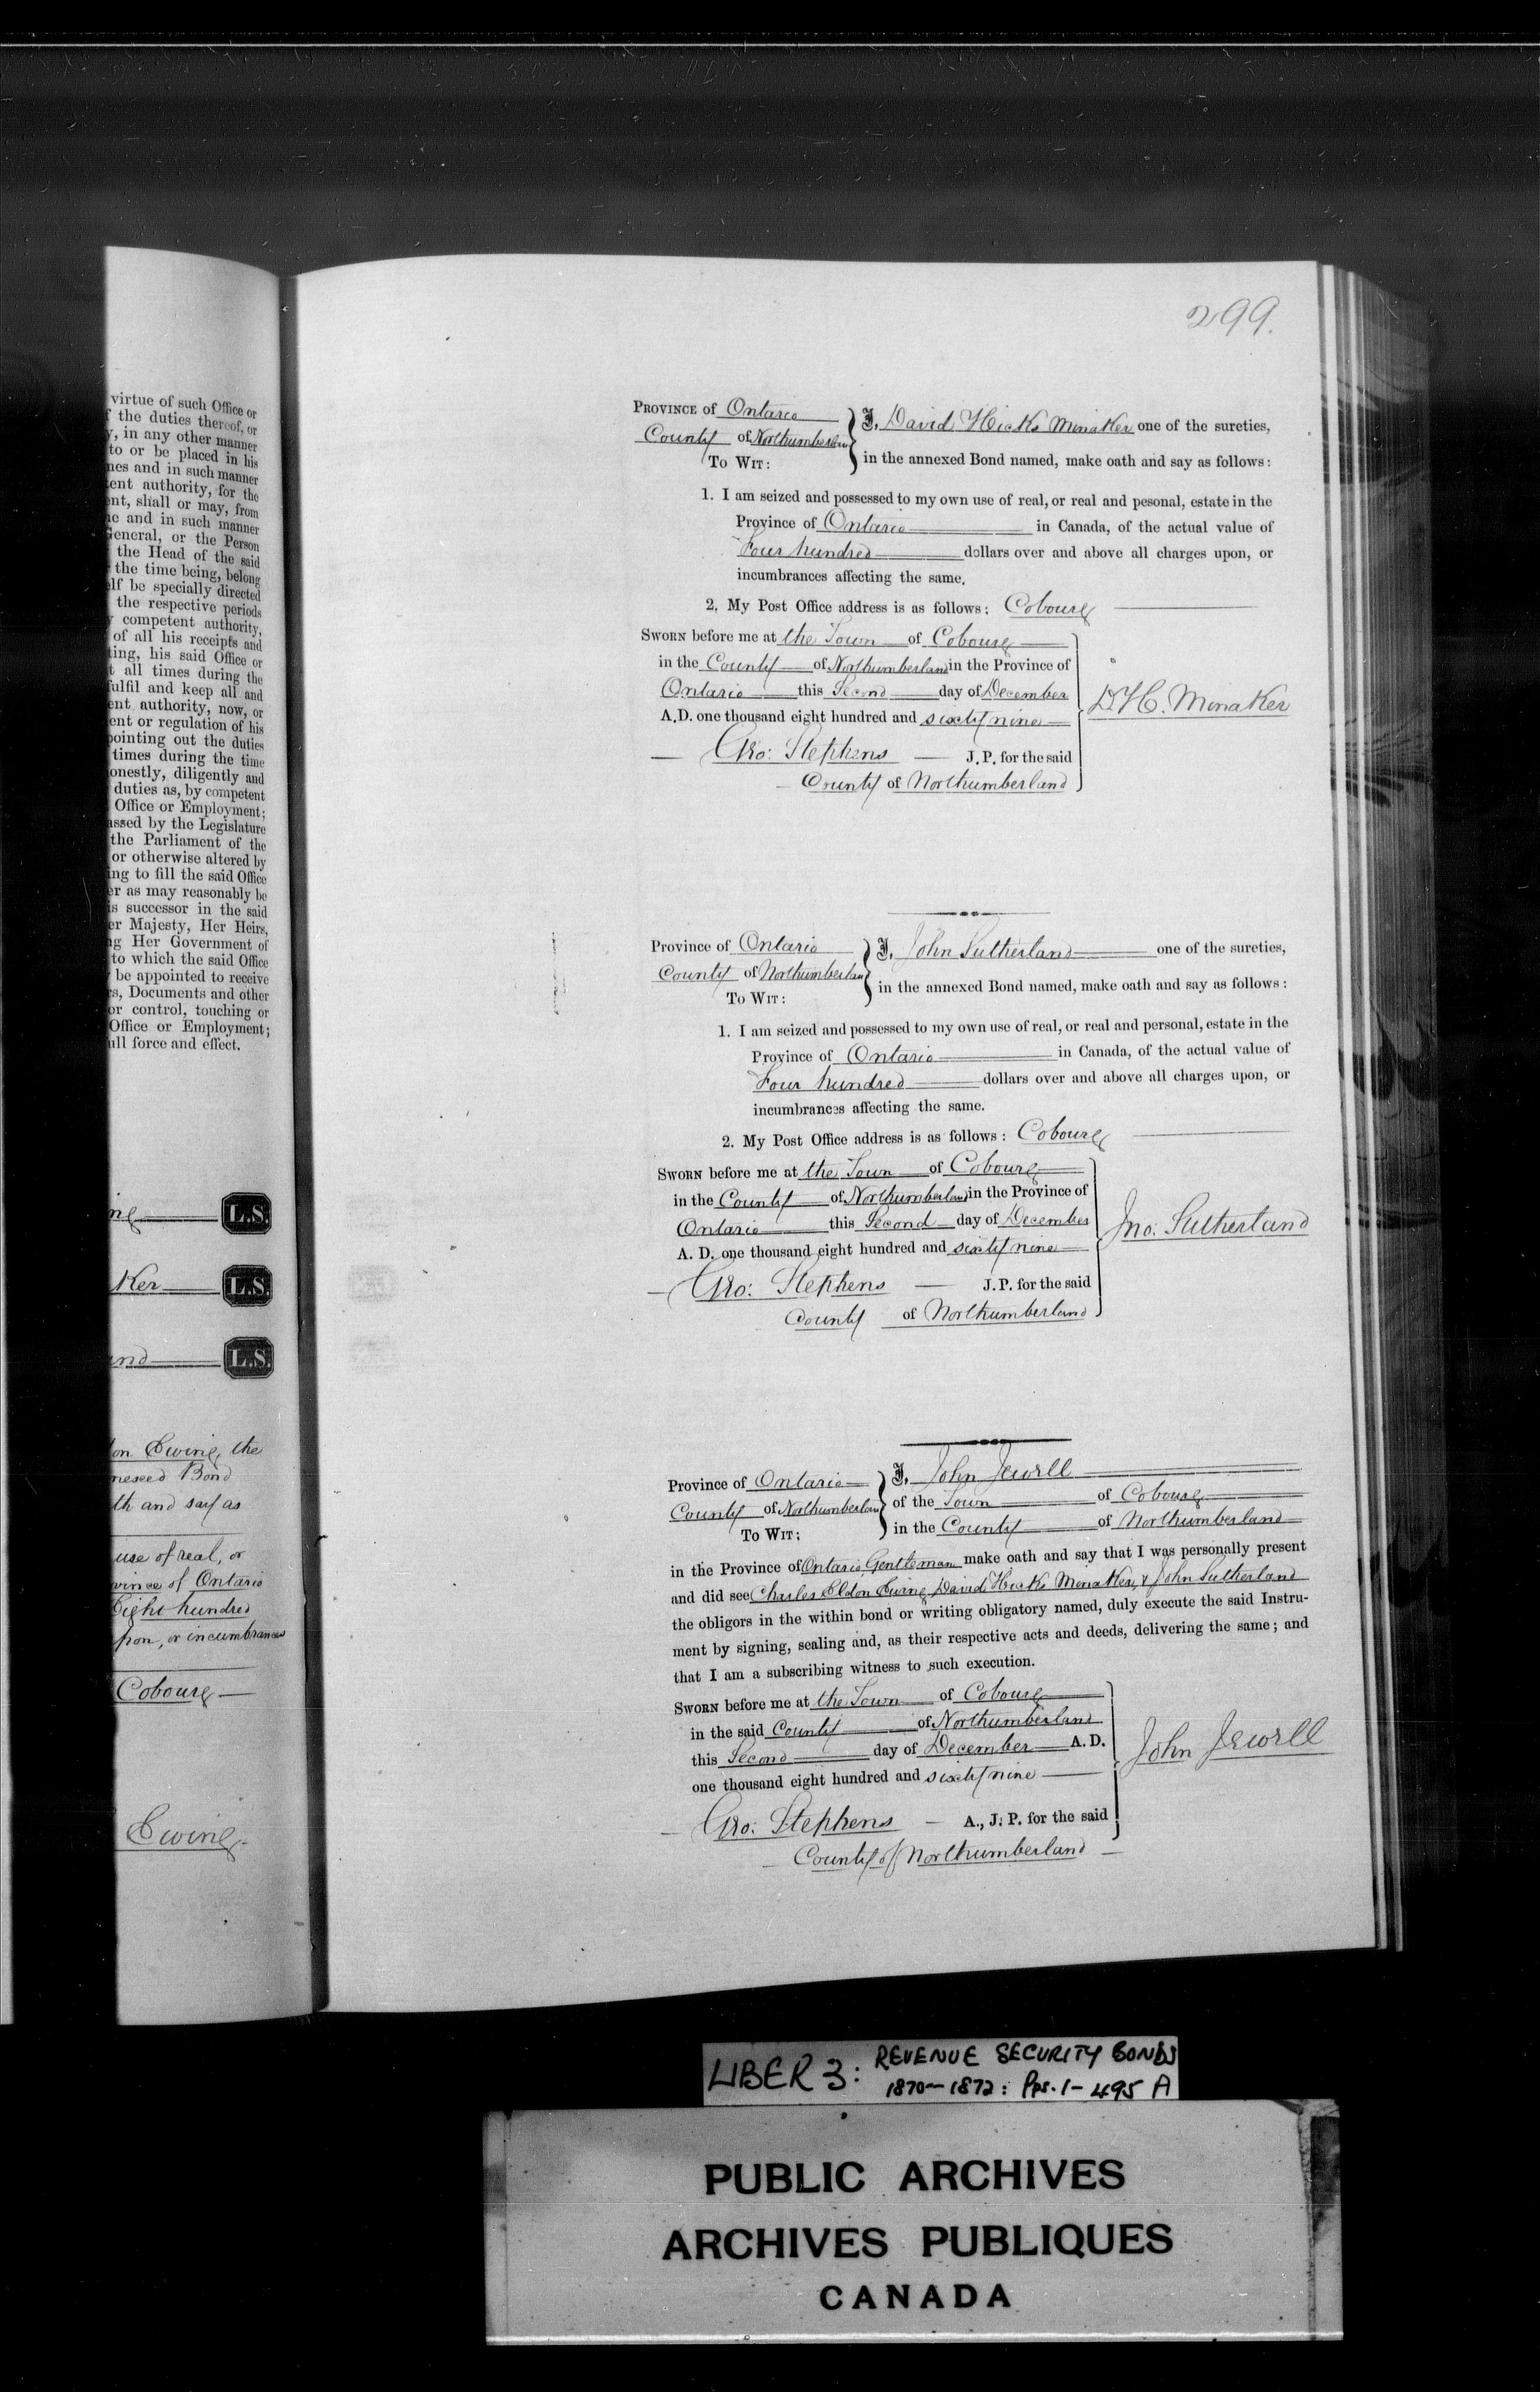 virtue of such Office or
the duties thereof, or
, in any other manner
to or be placed in his
nes and in such manner
ent authority, for the
ent, shall or may, from
e and in such manner
General, or the Person
the Head of the said
the time being, belong
lf be specially directed
the respective periods
competent authority,
of all his receipts and
ting, his said Office or
t all times during the
fulfil and keep all and
ent authority, now, or
ent or regulation of his
pointing out the duties
times during the time
onestly, diligently and
duties as, by competent
Office or Employment;
assed by the Legislature
the Parliament of the
or otherwise altered by
ing to fill the said Office
er as may reasonably be
is successor in the said
er Majesty, Her Heirs,
ng Her Government of
to which the said Office
be appointed to receive
rs, Documents and other
or control, touching or
Office or Employment;
ull force and effect.
ng L.S.
ker L.S.
and L.S.
on Ewing, the
nexed Bond
th and say as
use of real, or
vince of Ontario
Eight hundred
pon, or incumbrances
Cobourg
Ewing.
299.
PROVINCE of Ontario
County of Northumberland
TO WIT:
I, David Hicks Minaker one of the sureties,
in the annexed Bond named, make oath and say as follows:
1. I am seized and possessed to my own use of real, or real and pesonal, estate in the
Province of Ontario in Canada, of the actual value of
Four hundred dollars over and above all charges upon, or
incumbrances affecting the same.
2. My Post Office address is as follows: Cobourg
SWORN before me at the Town of Cobourg
in the County of Northumberland in the Province of
Ontario this Second day of December
A.D. one thousand eight hundred and sixty nine
Geo: Stephens J.P. for the said
County of Northumberland
D.H. Minaker
Province of Ontario
County of Northumberland
TO WIT:
I, John Sutherland one of the sureties,
in the annexed Bond named, make oath and say as follows:
1. I am seized and possessed to my own use of real, or real and personal, estate in the
Province of Ontario in Canada, of the actual value of
Four hundred dollars over and above all charges upon, or
incumbrances affecting the same.
2. My Post Office address is as follows: Cobourg
SWORN before me at the Town of Cobourg
in the County of Northumberland in the Province of
Ontario this Second day of December
A. D. one thousand eight hundred and sixty nine
Geo: Stephens J.P. for the said
County of Northumberland
Jno: Sutherland
Province of Ontario
County of Northumberland
TO WIT:
I, John Jewell
of the Town of Cobourg
in the County of Northumberland
in the Province of Ontario, Gentleman make oath and say that I was personally present
and did see Charles Eldon Ewing, David Hicks Minaker, & John Sutherland
the obligors in the within bond or writing obligatory named, duly execute the said Instru-
ment by signing, sealing and, as their respective acts and deeds, delivering the same; and
that I am a subscribing witness to such execution.
SWORN before me at the Town of Cobourg
in the said County of Northumberland
this Second day of December A.D.
one thousand eight hundred and sixty nine
Geo: Stephens A., J. P. for the said
County of Northumberland
John Jewell
LIBER 3: REVENUE SECURITY BONDS
1870-1872: Pps. 1-495 A
PUBLIC ARCHIVES
ARCHIVES PUBLIQUES
CANADA